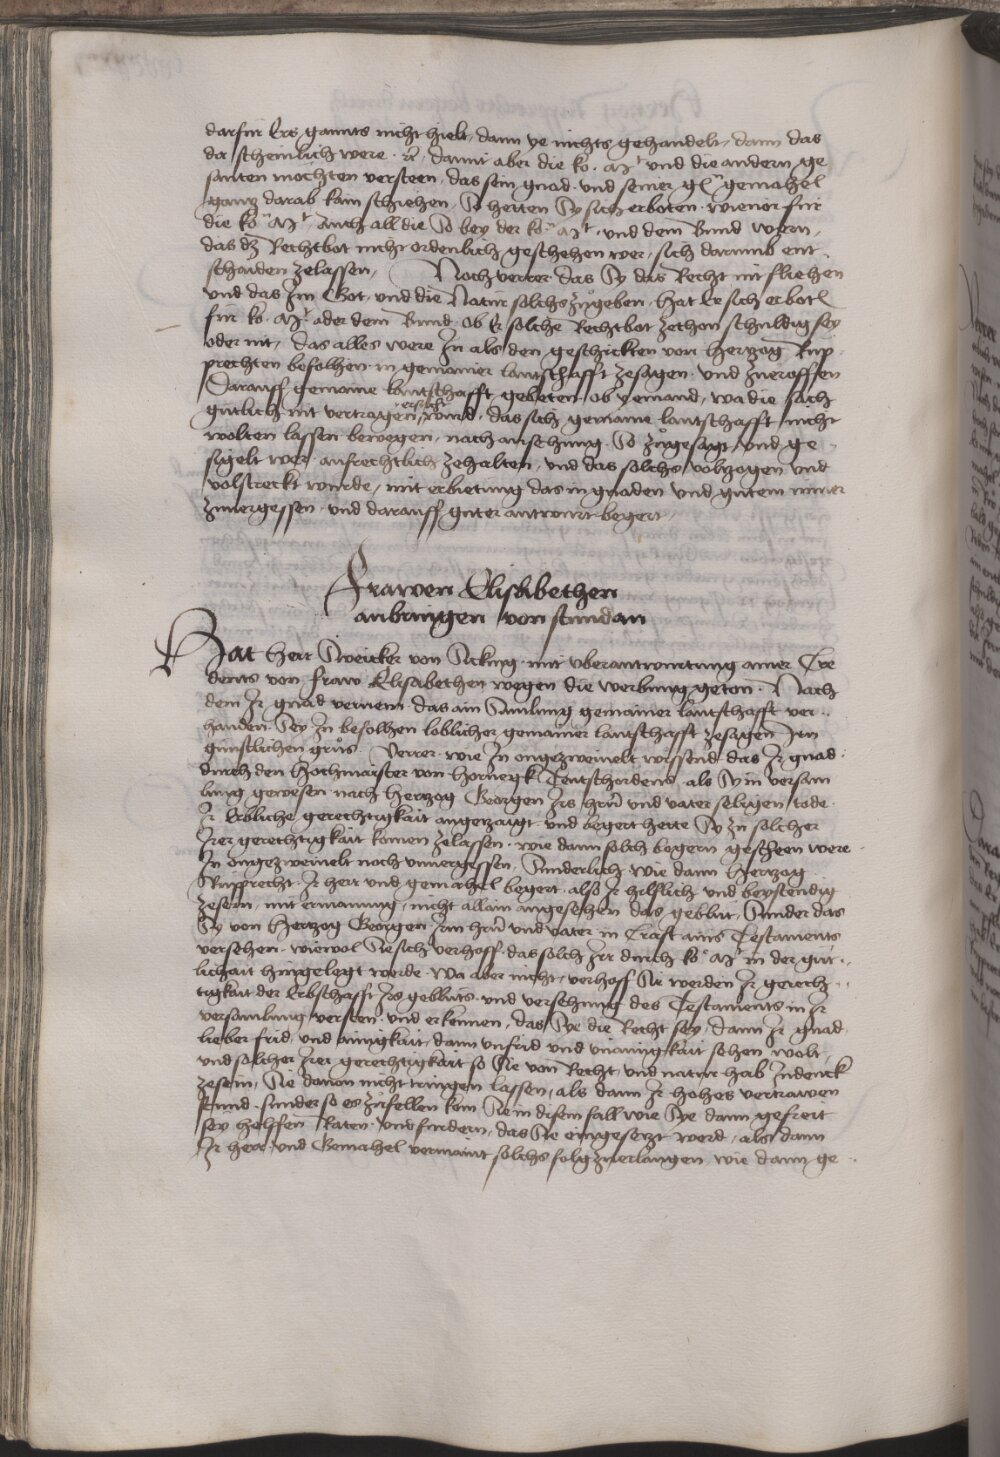 darfür Ers gannts nicht hielt, dann ye nichts gehandelt, dann das
da scheinlich were. damit aber die ko. Mt und die andern ge
santen mochten versteen, das sein gnad und seiner gemahel
ganz darab kain schiehen, So hetten Sy sich erboten
die ko Mt, auch all die So bey der ko Mt, und dem Bund wern,
das dz Rechtbot nicht ordenlich geschehen wer, sich darumb ent
schaiden zelassen, Noch verrer das Sy das Recht nit fliehen
und das Im Got, und die Natur solchs zugeben, hat Er sich erbott
für ko. Mt oder dem Bund, ob Er solche Rechtbot zethon schuldig sey
oder nit, das alles were In als den geschickten von Hertzog Rup
prechten bevolhen in gemainer lantschafft zesagen, und zueroffen
Darauff gemaine lantschafft gebeten, ob yemand, wa die sach
gutlich nit vertragen ersucht wurd, das sich gemaine lantschafft nicht
wolten lassen bewegen, nach ansehung So zugesagt und ge
sigelt wer, aufrechtlich zehalten, und das solchs volzogen und
volstreckt wurde, mit erbietung das in gnaden und gutem nimer
zuvergessen, und darauff guter antwurt begert,
Frawen Elisabethen
anbringen von stundan
Hat Herr Sweicker von Sicking mit uberantwurtung ainer Cre
dentz von fraw Elisabethen wegen die werbung geton. Nach
dem Ir gnad vernem das ain Samlung gemainer lantschafft ver
handen Sey In bevolhen loblicher gemainer lantschafft zesagen Irn
günstlichen grus. Verrer wie In ongezweinelt wissend das Ir gnad
durch den Hochmaister von Hornegk Teutschordens, als Sy in versam
lung gewesen nach Hertzog Georgen Irs hern und vater seligen tode
Ir Erbliche gerechtigkait angezaigt und begert hette Sy zu solcher
Irer gerechtigkait komen zelassen, wie dann solch begern gescheen were
In ongezweinelt noch unvergessen, Sunderlich wie dann Hertzog
Rupprecht Ir herr und gemahel begert also Ir hilflich und beystendig
zesein, mit ermanung, nicht allain angesehen das geblut, Sunder das
Sy von Hertzog Georgen Irm hern und vater in Craft ains Testaments
versehen, wiewol Sie sich verhoff, das solch Irr durch ko Mt in der güt
lichait hingelegt werde, Wa aber nicht, verhoff Sie werden Ir gerech
tigkait der Erbschafft Irs gebluts und versehung des Testaments in Ir
versamlung versteen und erkennen, das Sye die Recht sey, dann Ir gnad
lieber frid, und ainigkait, dann unfrid und unainigkait sehen wolt,
und solcher Irer gerechtigkait so Sie von Recht und natur hab Indenck
zesein, Sie davon nicht tringen lassen, als dann Ir hohes vertrawen
stund, sunder so es zufellen kem Sie in disem fall wie Sye dann gefreit
sey helfen Raten und furdern, das Sie eingesetzt werd, als dann
Ir herr und Gemahel vermaint solchs folg zuerlangen, wie dann ge